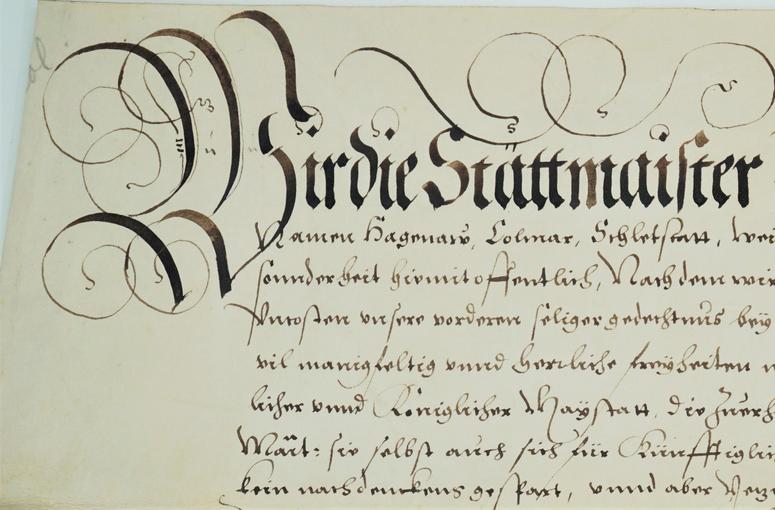 Wir die Stättmaister
Namen Hagenaw, Colmar, Schletstatt, Wei
sonderheit hiemit offentlich, Nach dem wir
Vncosten vnsere vorderen seliger gedechtnus bey
vil manigfeltig vnnd herrliche freyheiten
licher vnnd Königlicher Maystatt, die Zuerh
Maÿt: sie selbst auch sich für Künfftiglic
kein nachdenckens gespart, vnnd aber